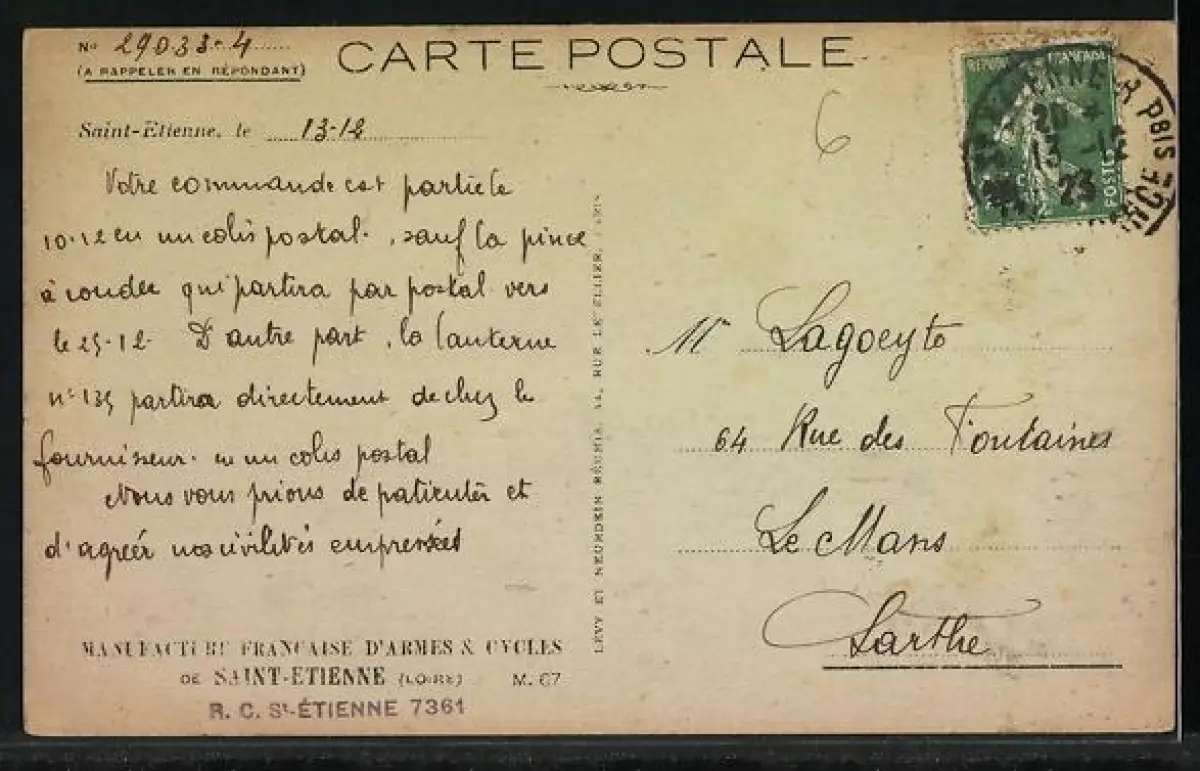 No 29033-4
(A RAPPELER EN RÉPONDANT)
CARTE POSTALE
Saint-Etienne, le 13-12
6
Votre commande est partie le
10-12 en un colis postal, sauf la pince
à souder qui partira par postal vers
le 25-12. D'autre part, la lanterne
n° 135 partira directement de chez le
fournisseur en un colis postal
Nous vous prions de patienter et
d'agréer nos civilités empressées
MANUFACTURE FRANÇAISE D'ARMES & CYCLES
DE SAINT-ETIENNE (LOIRE) M. 67
R. C. St-ÉTIENNE 7361
LÉVY ET NEURDEIN RÉUNIS, 44, RUE LETELLIER, PARIS
RÉPUBLIQUE FRANÇAISE
POSTES
13 -12
23
Mr Lagoeyte
64 Rue des Fontaines
Le Mans
Sarthe